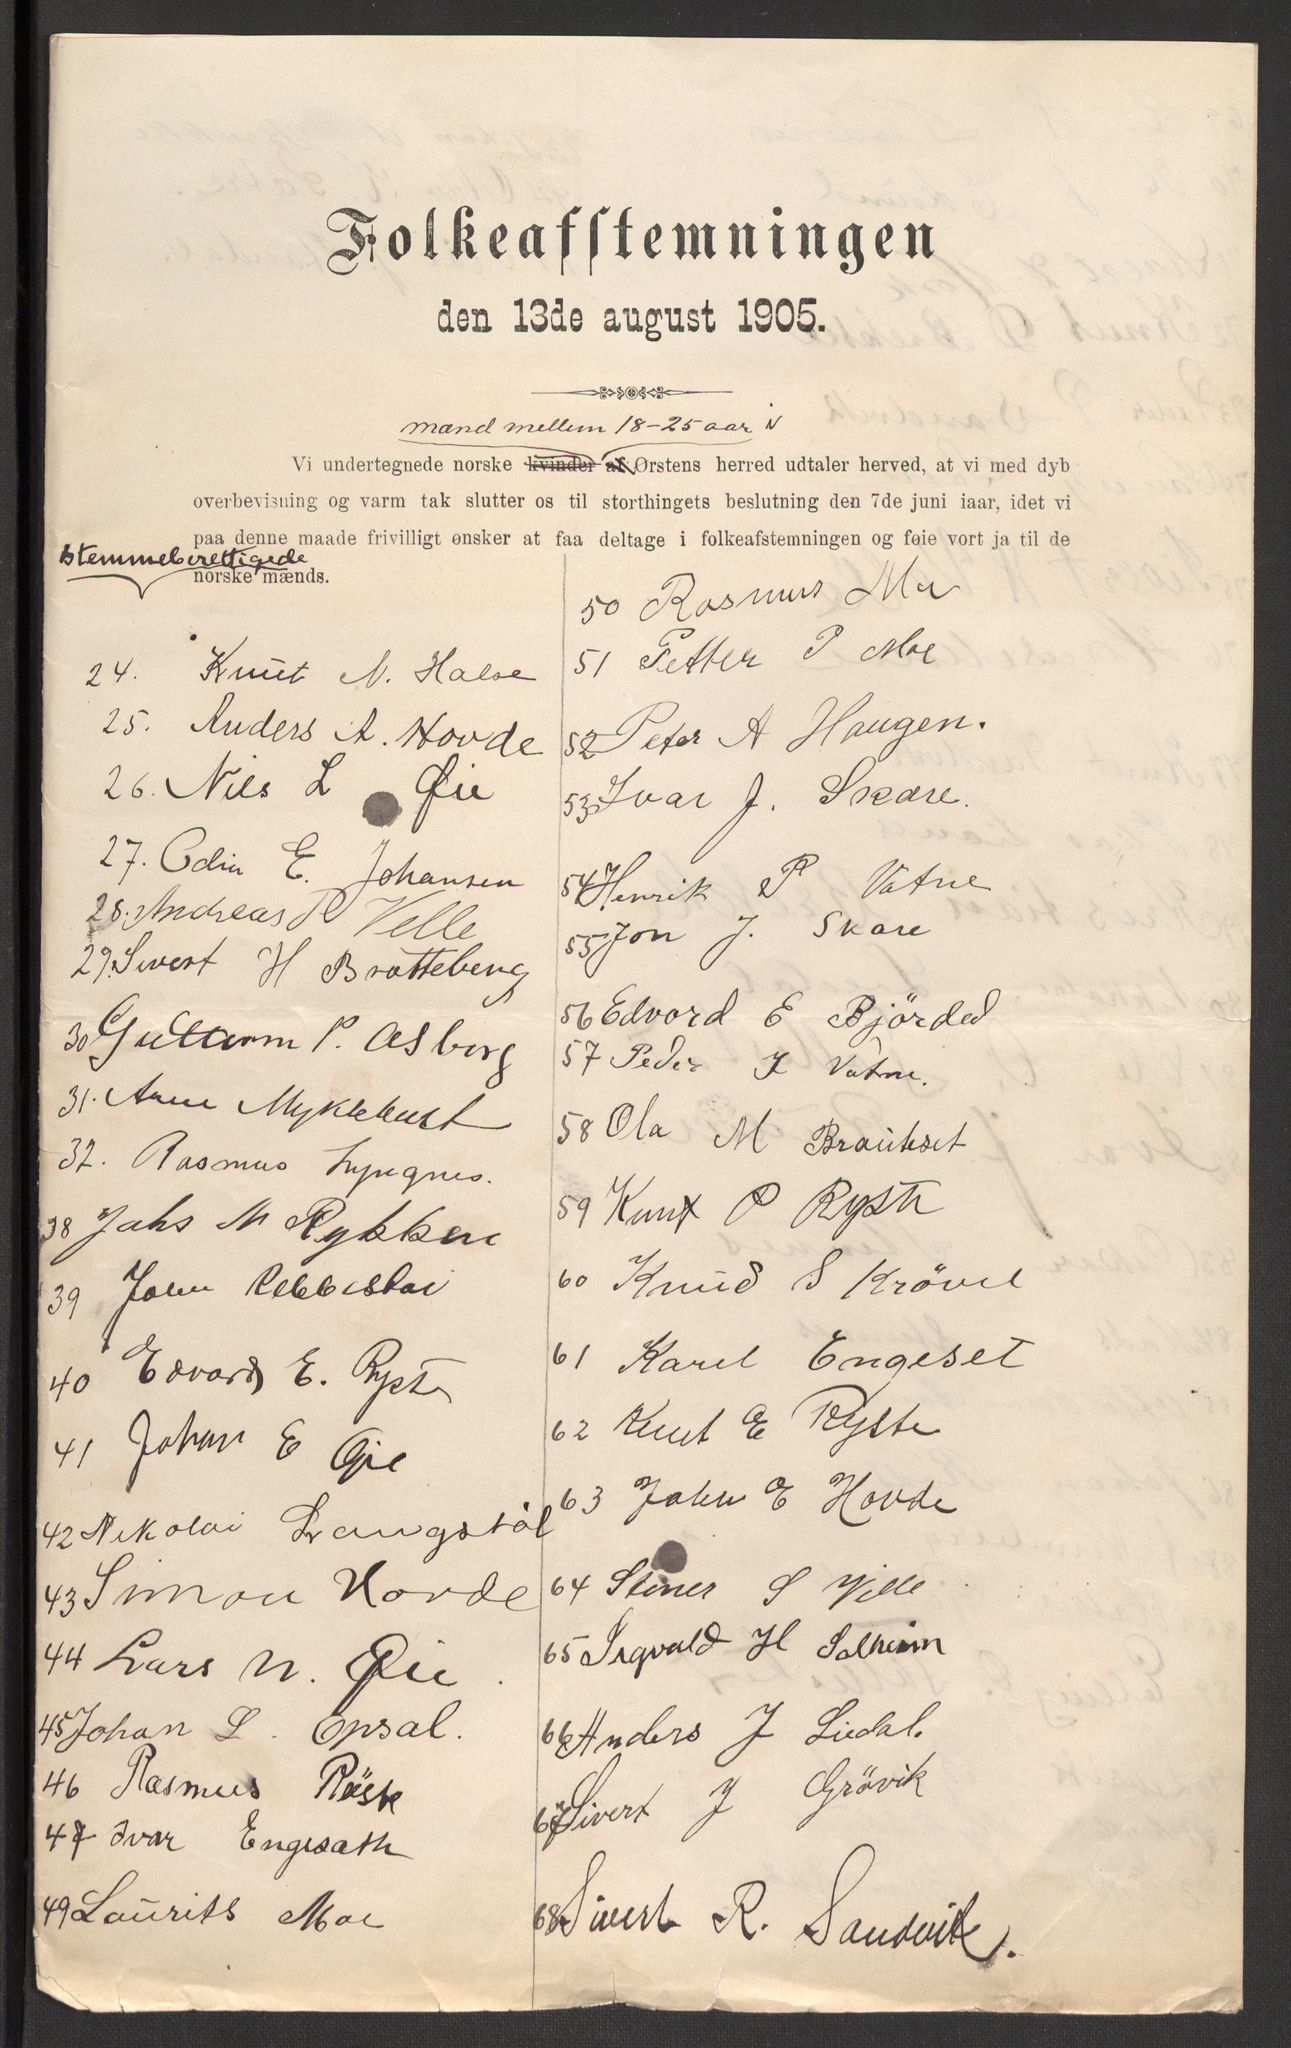 Folkeafstemningen
den 13de august 1905.
mænd mellem 18-25 aar i
Vi undertegnede norske kvinder af Ørstens herred udtaler herved, at vi med dyb
overbevisning og varm tak slutter os til storthingets beslutning den 7de juni iaar, idet vi
paa denne maade frivilligt ønsker at faa deltage i folkeafstemningen og føie vort ja til de
stemmeberettigede
norske mænds.
24. Knut N. Halse
25. Anders A. Hovde
26. Nils L Øie
27. Odin E. Johansen
28. Andreas R Velle
29. Sivert H Brautteberg
30 Guttorm P. Asberg
31. Arne Myklebust
32. Rasmus
38 Jahs M Rykken
39 John
40 Edvard E. Ryste
41 Johan E Øie
42 Nikolai Langstöl
43 Simon Hovde
44 Lars N. Øie.
45 Johan L. Opsal.
46 Rasmus Röste
47 Ivar Engesæth
49 Laurits Moe
50 Rasmus Mo
51 Petter P Moe
52 Peter A Haugen.
53 Ivar J. Skare.
54 Henrik P Vatne
55 Jon J. Skare
56 Edvard E Bjørdal
57 Peder J Vatne.
58 Ola M Brauteset
59 Knut P Ryste
60 Knud S Krövel
61 Karl Engeset
62 Knut E Ryste
63 John E Hovde
64 Steiner S Velle
65 Sigvald H Solheim
66 Anders J Liedal.
67 Sivert J Grövik
68 Sivert R. Sandvik.